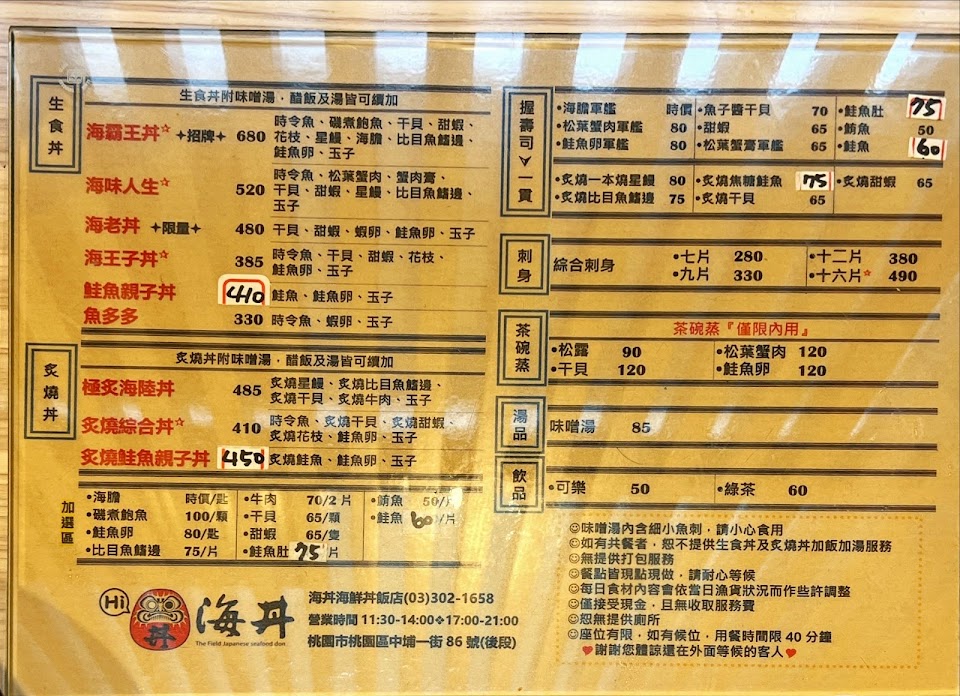 生食丼
生食丼附味噌湯，醋飯及湯皆可續加
海霸王丼☆ ✦招牌✦ 680 時令魚、磯煮鮑魚、干貝、甜蝦、
花枝、星鰻、海膽、比目魚鰭邊、
鮭魚卵、玉子
海味人生☆ 520 時令魚、松葉蟹肉、蟹肉膏、
干貝、甜蝦、星鰻、比目魚鰭邊、
玉子
海老丼 ✦限量✦ 480 干貝、甜蝦、蝦卵、鮭魚卵、玉子
海王子丼☆ 385 時令魚、干貝、甜蝦、花枝、
鮭魚卵、玉子
鮭魚親子丼 410 鮭魚、鮭魚卵、玉子
魚多多 330 時令魚、蝦卵、玉子
炙燒丼
炙燒丼附味噌湯，醋飯及湯皆可續加
極炙海陸丼 485 炙燒星鰻、炙燒比目魚鰭邊、
炙燒干貝、炙燒牛肉、玉子
炙燒綜合丼☆ 410 時令魚、炙燒干貝、炙燒甜蝦、
炙燒花枝、鮭魚卵、玉子
炙燒鮭魚親子丼 450 炙燒鮭魚、鮭魚卵、玉子
加選區
•海膽 時價/匙 •牛肉 70/2片 •鮪魚 50/片
•磯煮鮑魚 100/顆 •干貝 65/顆 •鮭魚 60/片
•鮭魚卵 80/匙 •甜蝦 65/隻
•比目魚鰭邊 75/片 •鮭魚肚 75/片
Hi
丼
海丼
The Field Japanese seafood don
海丼海鮮丼飯店(03)302-1658
營業時間 11:30-14:00❖17:00-21:00
桃園市桃園區中埔一街 86 號(後段)
握壽司一貫
•海膽軍艦 時價 •魚子醬干貝 70 •鮭魚肚 75
•松葉蟹肉軍艦 80 •甜蝦 65 •鮪魚 50
•鮭魚卵軍艦 80 •松葉蟹膏軍艦 65 •鮭魚 60
•炙燒一本燒星鰻 80 •炙燒焦糖鮭魚 75 •炙燒甜蝦 65
•炙燒比目魚鰭邊 75 •炙燒干貝 65
刺身
綜合刺身 •七片 280 •十二片 380
•九片 330 •十六片☆ 490
茶碗蒸
茶碗蒸『僅限內用』
•松露 90 •松葉蟹肉 120
•干貝 120 •鮭魚卵 120
湯品
味噌湯 85
飲品
•可樂 50 •綠茶 60
☺味噌湯內含細小魚刺，請小心食用
☺如有共餐者，恕不提供生食丼及炙燒丼加飯加湯服務
☺無提供打包服務
☺餐點皆現點現做，請耐心等候
☺每日食材內容會依當日漁貨狀況而作些許調整
☺僅接受現金，且無收取服務費
☺恕無提供廁所
☺座位有限，如有候位，用餐時間限 40 分鐘
❤謝謝您體諒還在外面等候的客人❤